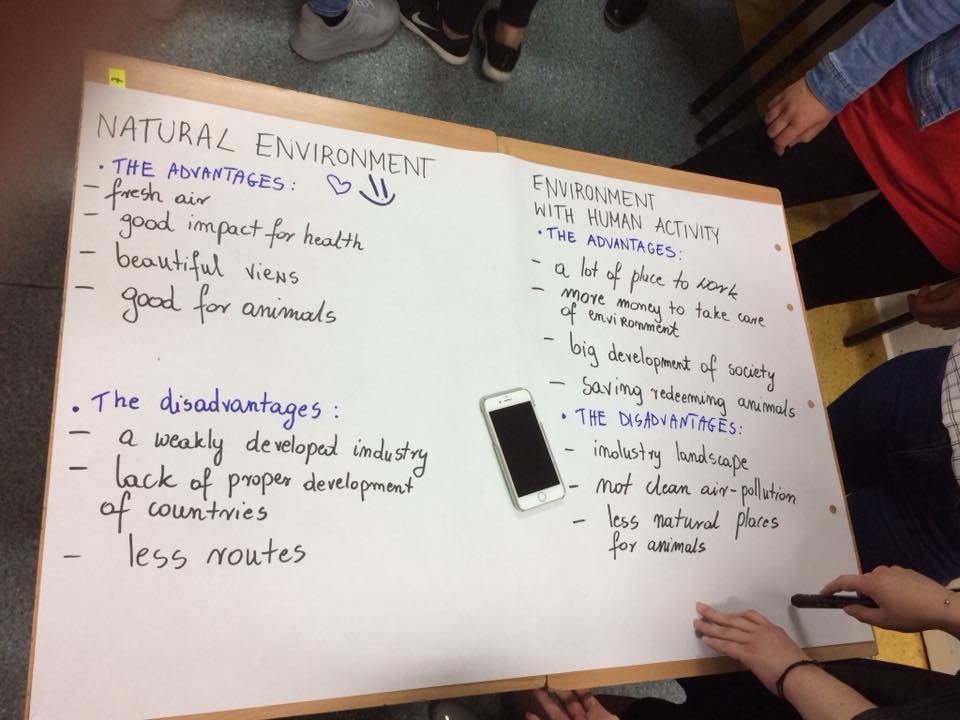 NATURAL ENVIRONMENT
• THE ADVANTAGES:
- fresh air
- good impact for health
- beautiful viens
- good for animals
• The disadvantages:
- a weakly developed industry
- lack of proper development
of countries
- less routes
ENVIRONMENT
WITH HUMAN ACTIVITY
• THE ADVANTAGES:
- a lot of place to work
- more money to take care
of environment
- big development of society
- saving redeeming animals
• THE DISADVANTAGES:
- industry landscape
- not clean air-pollution
- less natural places
for animals